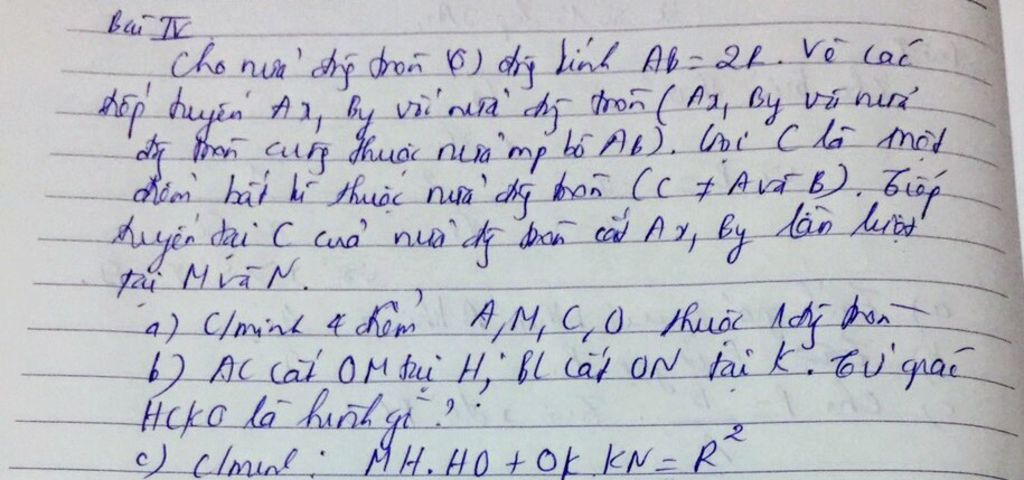 Bài IV.
Cho nửa đg tròn (O) đg kính AB = 2R. Vẽ các
tiếp tuyến Ax, By với nửa đg tròn (Ax, By và nửa
đg tròn cùng thuộc nửa mp bờ AB). Gọi C là một
điểm bất kì thuộc nửa đg tròn (C ≠ A và B). Tiếp
tuyến tại C của nửa đg tròn cắt Ax, By lần lượt
tại M và N.
a) C/minh 4 điểm A, M, C, O thuộc 1 đg tròn
b) AC cắt OM tại H; BC cắt ON tại K. Tứ giác
HCKO là hình gì?
c) C/minh: MH.HO + OK.KN = R²